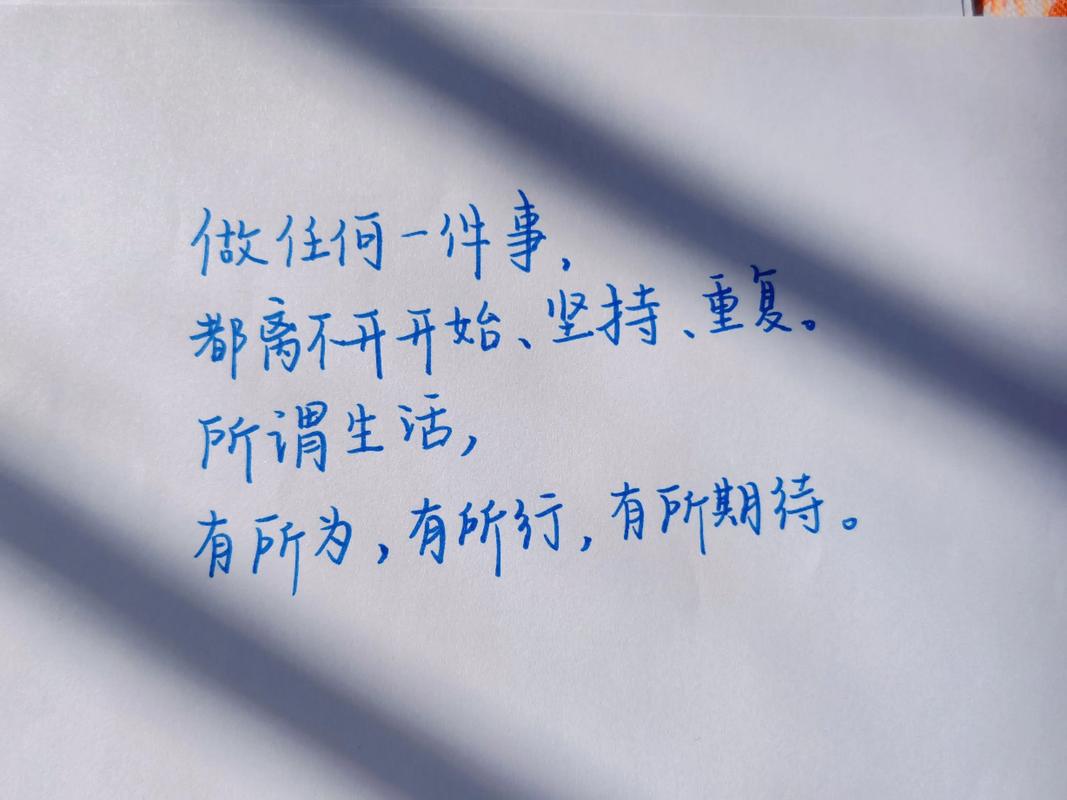 做任何一件事,
都离不开开始、坚持、重复。
所谓生活,
有所为,有所行,有所期待。